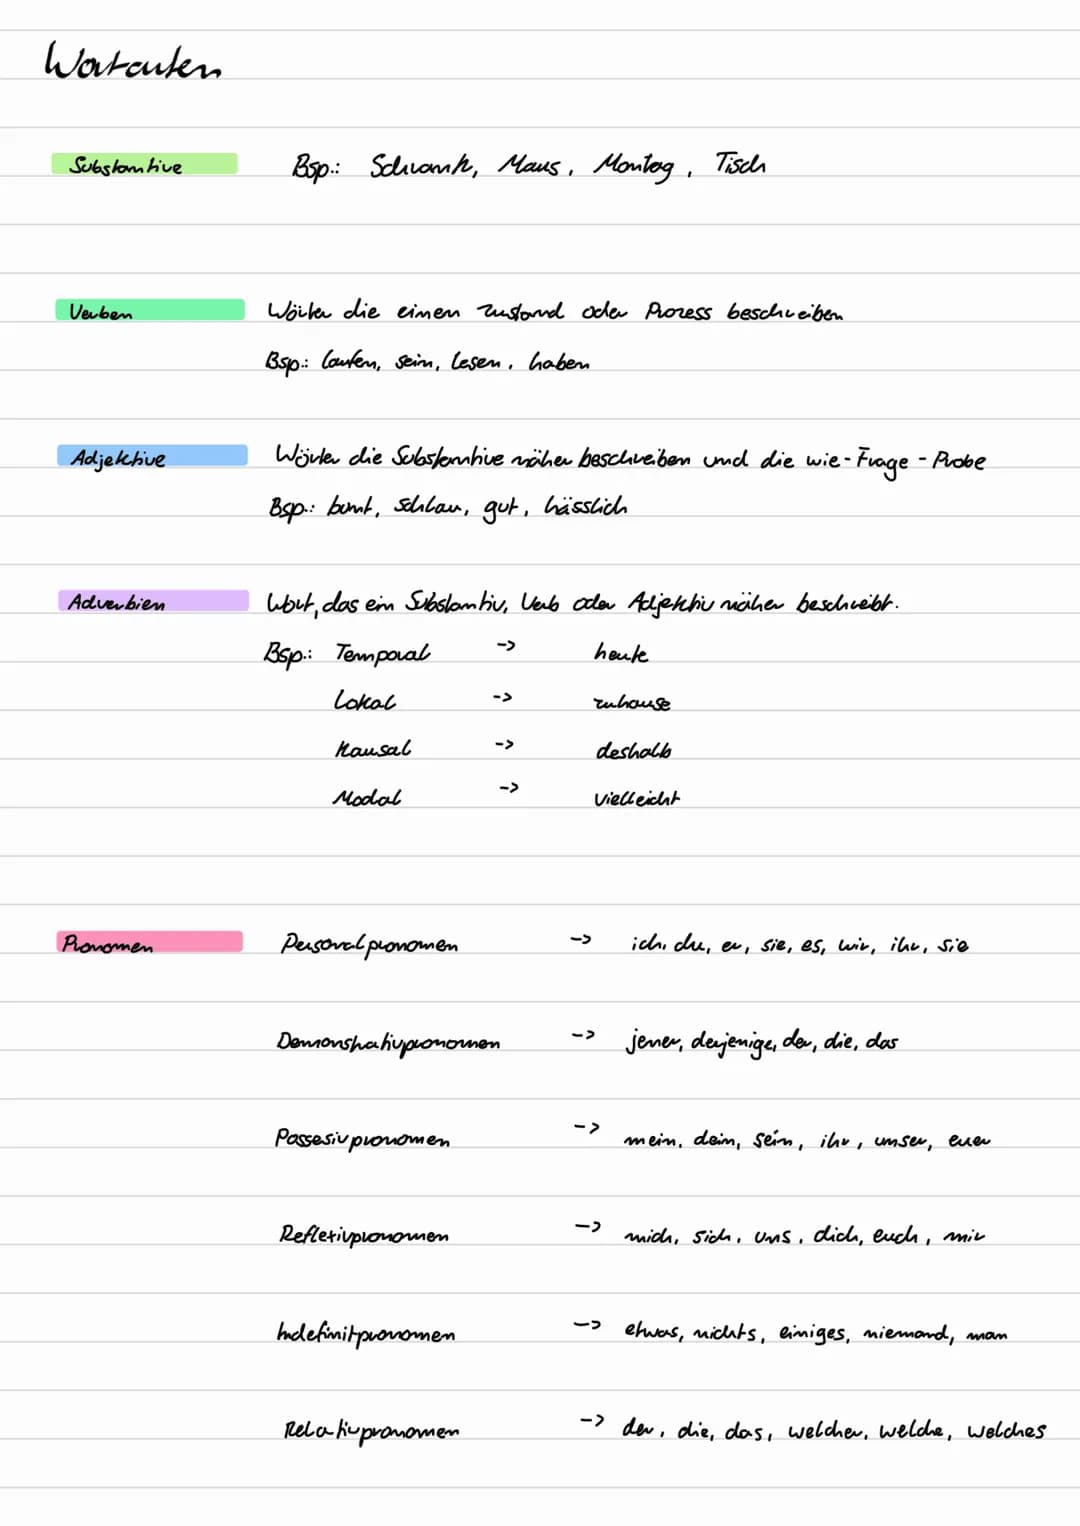 Wortarten
Substantive Bsp.: Schrank, Maus, Montag, Tisch
Verben Wörter die einen Zustand oder Prozess beschreiben
Bsp.: laufen, sein, lesen, haben
Adjektive Wörter die Substantive näher beschreiben und die wie-Frage-Probe
Bsp.: bunt, schlau, gut, hässlich
Adverbien Wort, das ein Substantiv, Verb oder Adjektiv näher beschreibt.
Bsp.: Temporal -> heute
Lokal -> zuhause
Kausal -> deshalb
Modal -> vielleicht
Pronomen Personalpronomen -> ich, du, er, sie, es, wir, ihr, sie
Demonstrativpronomen -> jener, derjenige, der, die, das
Possesivpronomen -> mein, dein, sein, ihr, unser, euer
Reflexivpronomen -> mich, sich, uns, dich, euch, mir
Indefinitpronomen -> etwas, nichts, einiges, niemand, man
Relativpronomen -> der, die, das, welcher, welche, welches